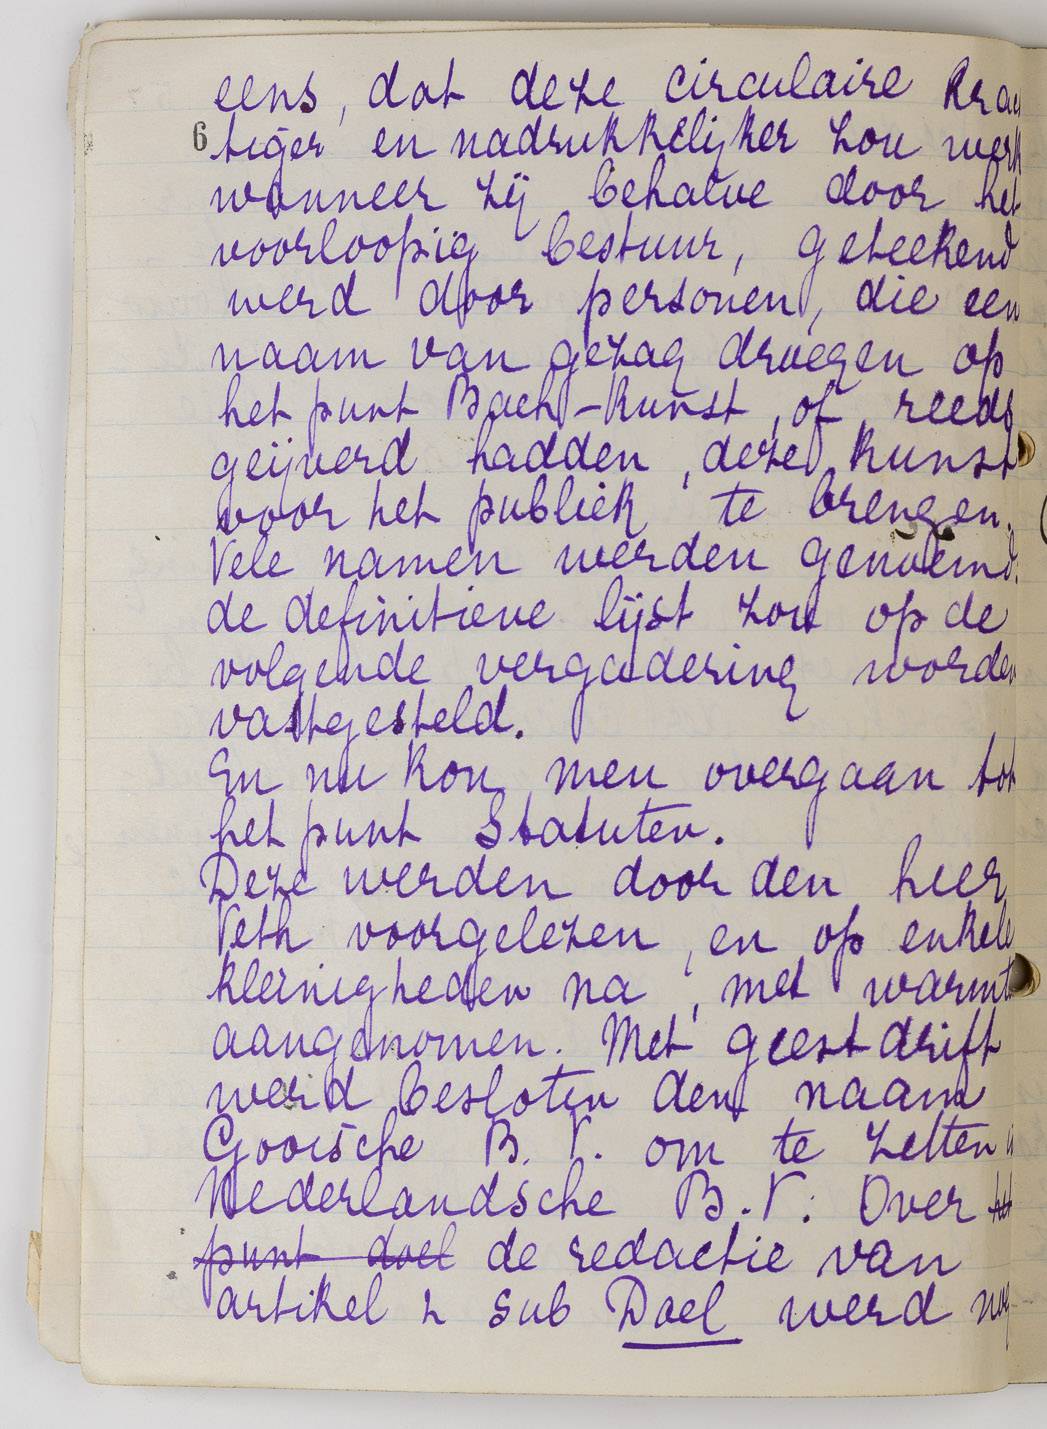 eens, dat deze circulaire krac
6
tiger en nadrukkelijker zou werk
wanneer zij behalve door het
voorloopig bestuur, geteekend
werd door personen, die een
naam van gezag droegen op
het punt Bach-kunst, of reeds
geijverd hadden, deze kunst
voor het publiek te brengen.
Vele namen werden genoemd.
de definitieve lijst zou op de
volgende vergadering worden
vastgesteld.
En nu kon men overgaan tot
het punt Statuten.
Deze werden door den heer
Veth voorgelezen, en op enkele
kleinigheden na, met warmt
aangenomen. Met geestdrift
werd besloten den naam
Gooische B. V. om te zetten
Nederlandsche B. V. Over het
punt doel de redactie van
artikel 2 sub Doel werd nog